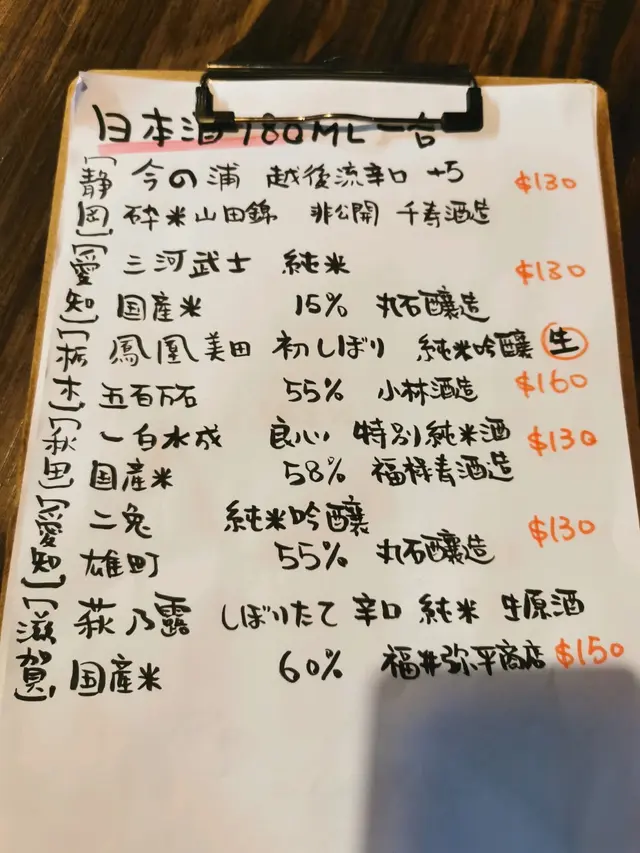 日本酒 180ML 一合
[静 今の浦 越後流辛口 +5 $130
岡] 砕米山田錦 非公開 千寿酒造
[愛 三河武士 純米 $130
知] 国産米 15% 丸石醸造
[栃 鳳凰美田 初しぼり 純米吟醸 生
木] 五百万石 55% 小林酒造 $160
[秋 一白水成 良心 特別純米酒 $130
田] 国産米 58% 福禄寿酒造
[愛 二兎 純米吟醸 $130
知] 雄町 55% 丸石醸造
[滋 萩乃露 しぼりたて 辛口 純米 生原酒
賀] 国産米 60% 福井弥平商店 $150